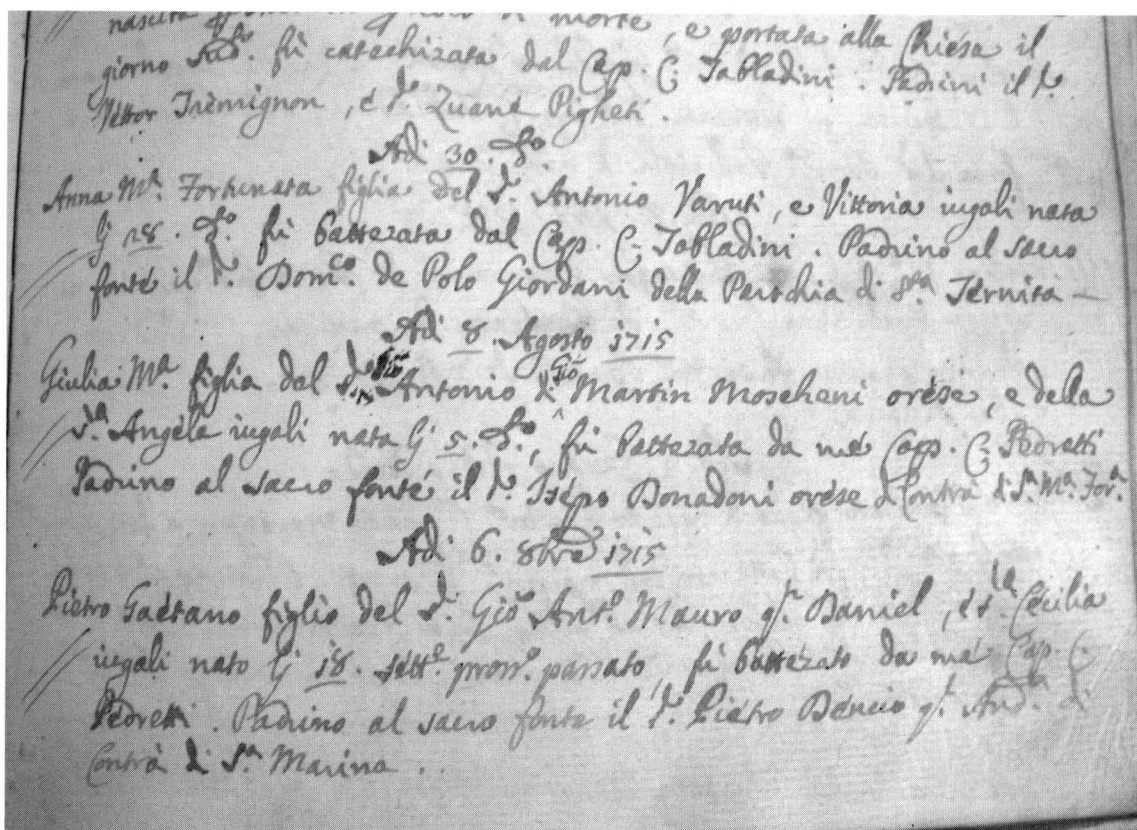 nascita di morte, e portata alla Chiesa il
giorno sud.ª fù catechizata dal Cap. C. Tabladini. Padrini il S.r
Vettor Tremignon, è S.r Zuane Pigheti.
Adi 30. d.º
Anna M.ª Fortunata figlia del S.r Antonio Varuti, e Vittoria iugali nata
li 28. d.º fù battezata dal Cap. C. Tabladini. Padrino al sacro
fonte il S.r Dom.co de Polo Giordani della Parochia di S.ta Ternita —
Adi 8. Agosto 1715
Giulia M.ª figlia del S.r Gio Antonio di Gio Martin Moscheni orése, e della
S.ª Angela iugali nata li 5. d.º, fù battezata da mé Cap. C. Pedretti
Padrino al sacro fonté il S.r Iseppo Bonadoni orése di Contrà di S.ª M.ª For.ª
Adi 6. 8bre 1715
Pietro Gaetano figlio del S.r Gio Ant.º Mauro q.r Daniel, è S.ra Cecilia
iugali nato li 18. sett.e pross.º passato, fù battezato da mé Cap. C.
Pedretti. Padrino al sacro fonte il S.r Pietro Bencio q.r And.ª di
Contrà di S.ª Marina.